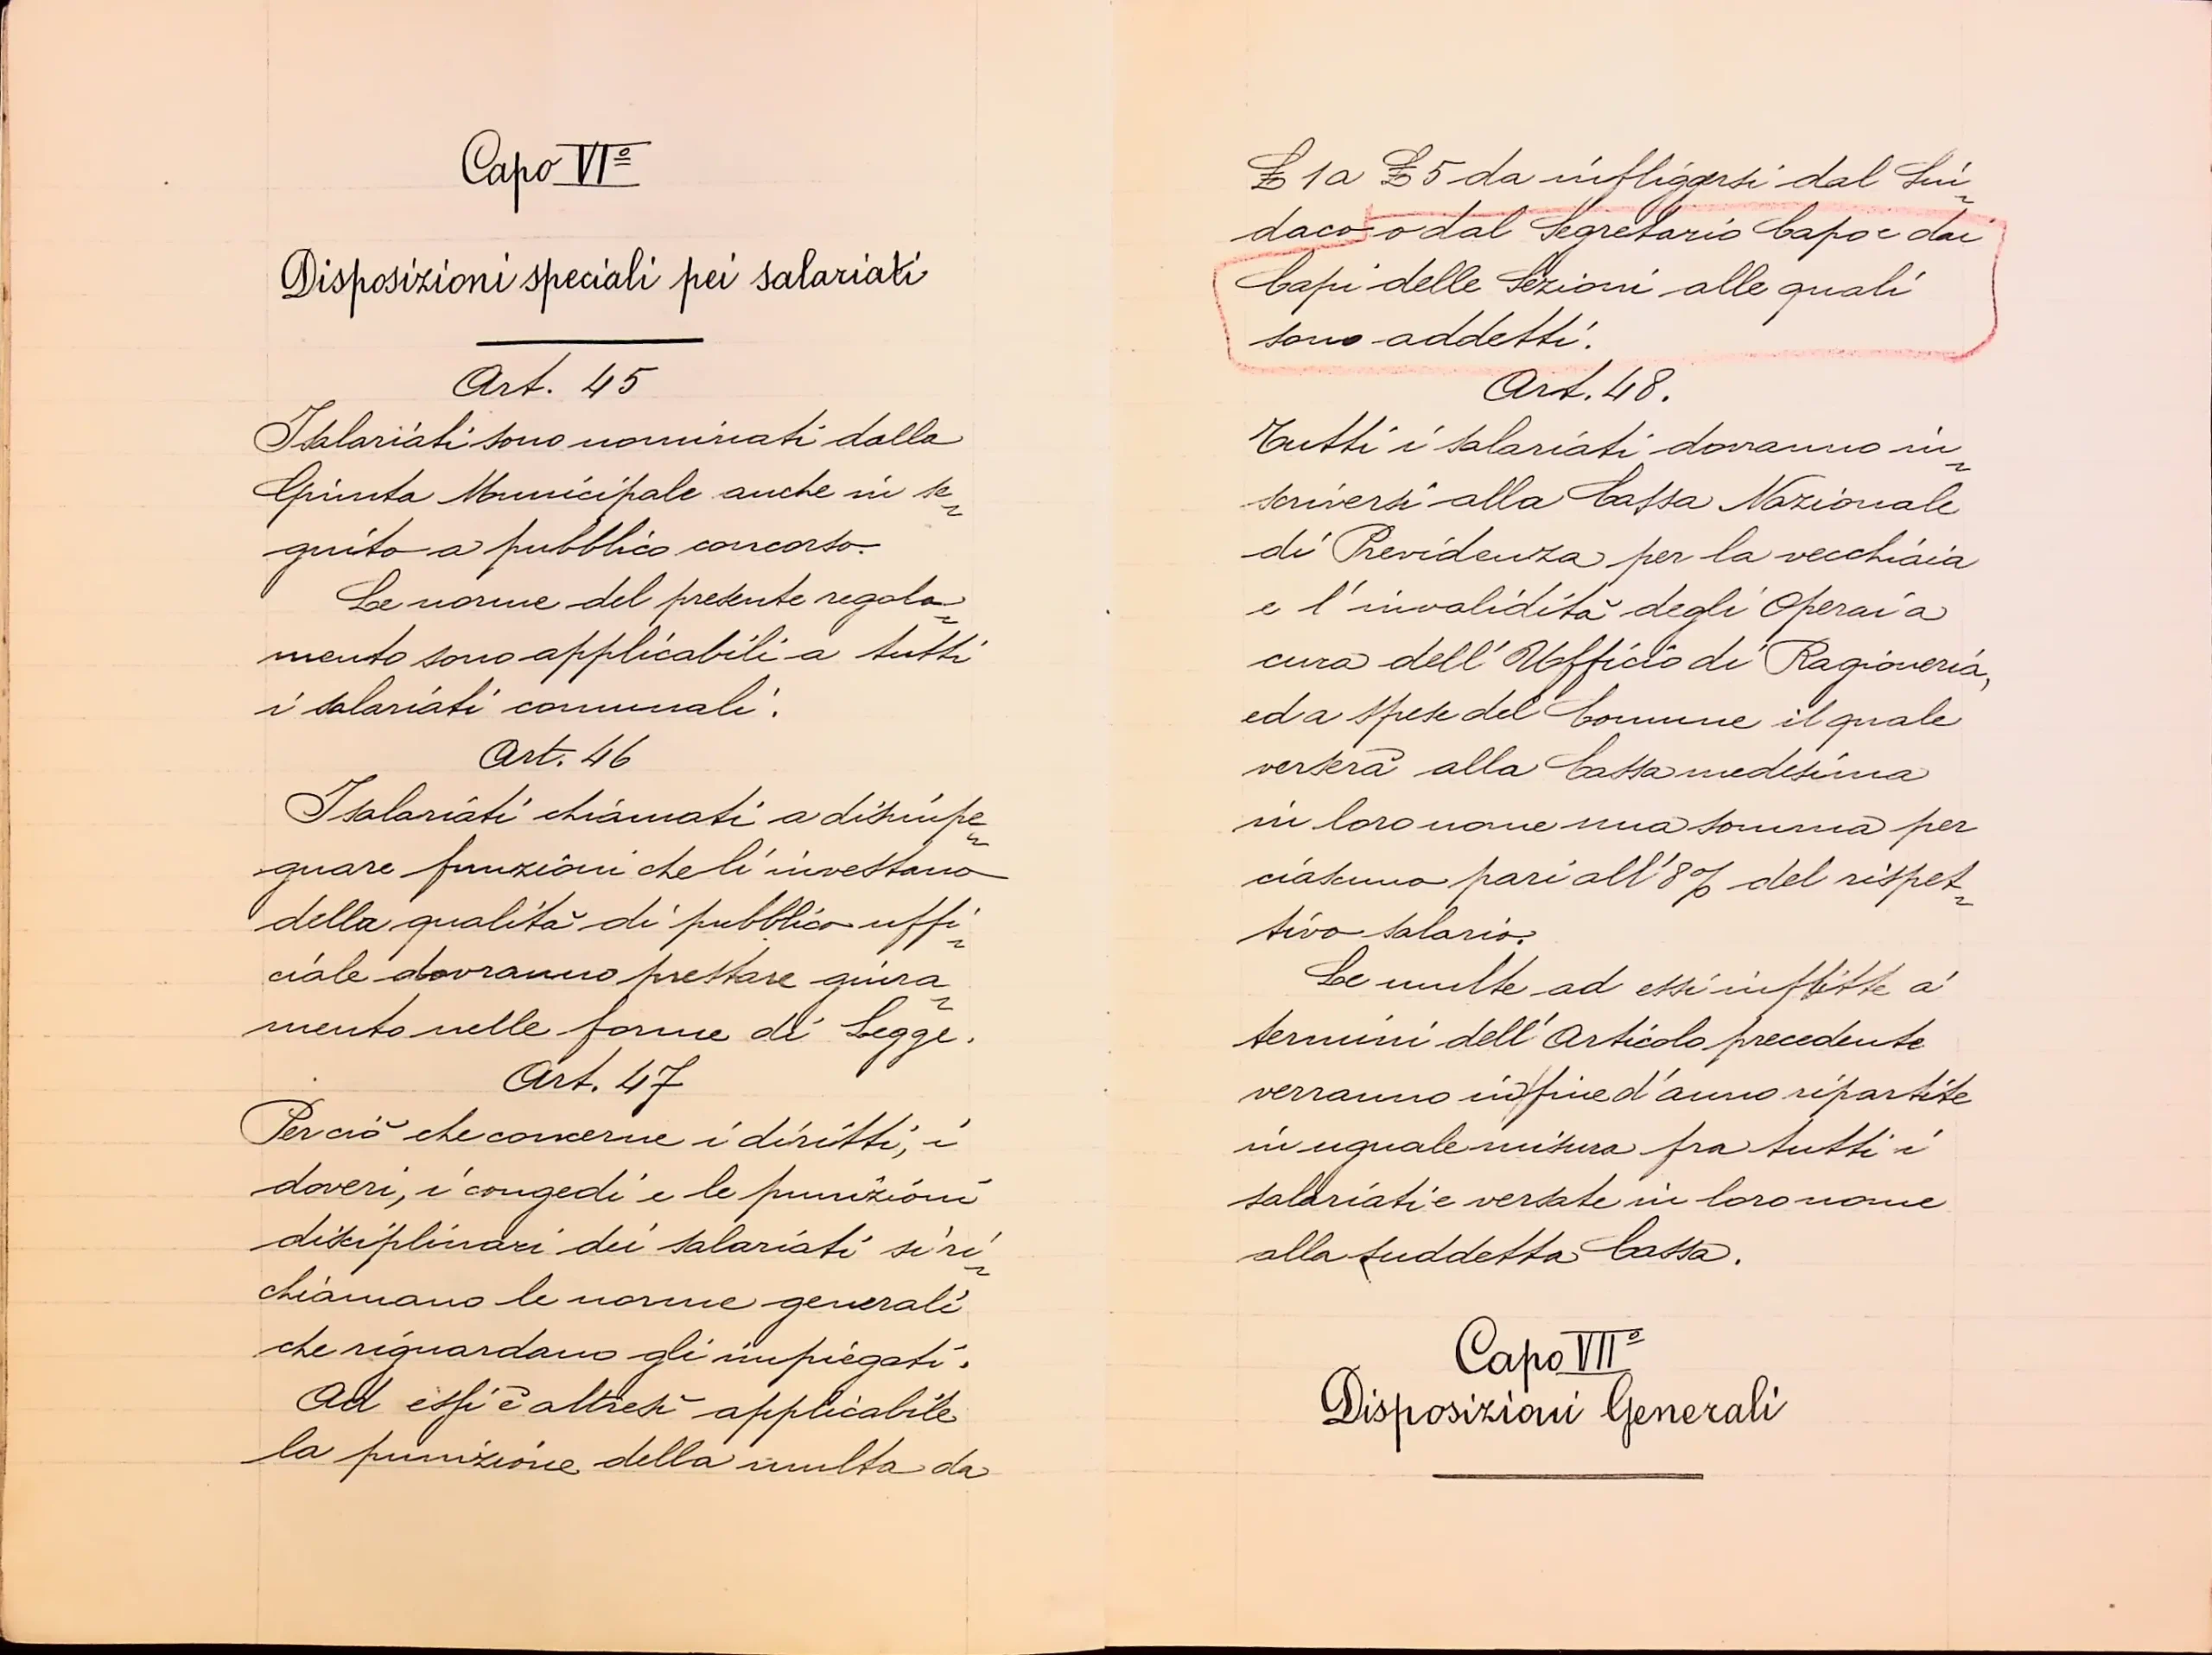 Capo VIº
Disposizioni speciali pei salariati
Art. 45
I salariati sono nominati dalla
Giunta Municipale anche in se
guito a pubblico concorso.
Le norme del presente regola
mento sono applicabili a tutti
i salariati comunali.
Art. 46
I salariati chiamati a disimpe
gnare funzioni che li investano
della qualità di pubblico uffi
ciale dovranno prestare giura
mento nelle forme di Legge.
Art. 47
Per ciò che concerne i diritti, i
doveri, i congedi e le punizioni
disciplinari dei salariati si ri
chiamano le norme generali
che riguardano gli impiegati.
Ad essi è altresì applicabile
la punizione della multa da
£ 1 a £ 5 da infliggersi dal Sin
daco o dal Segretario Capo e dai
Capi delle Sezioni alle quali
sono addetti.
Art. 48.
Tutti i salariati dovranno in
scriversi alla Cassa Nazionale
di Previdenza per la vecchiaia
e l'invalidità degli Operai a
cura dell'Ufficio di Ragioneria,
ed a spese del Comune il quale
verserà alla Cassa medesima
in loro nome una somma per
ciascuno pari all'8% del rispet
tivo salario.
Le multe ad essi inflitte a'
termini dell'Articolo precedente
verranno in fine d'anno ripartite
in uguale misura fra tutti i
salariati e versate in loro nome
alla suddetta Cassa.
Capo VIIº
Disposizioni Generali